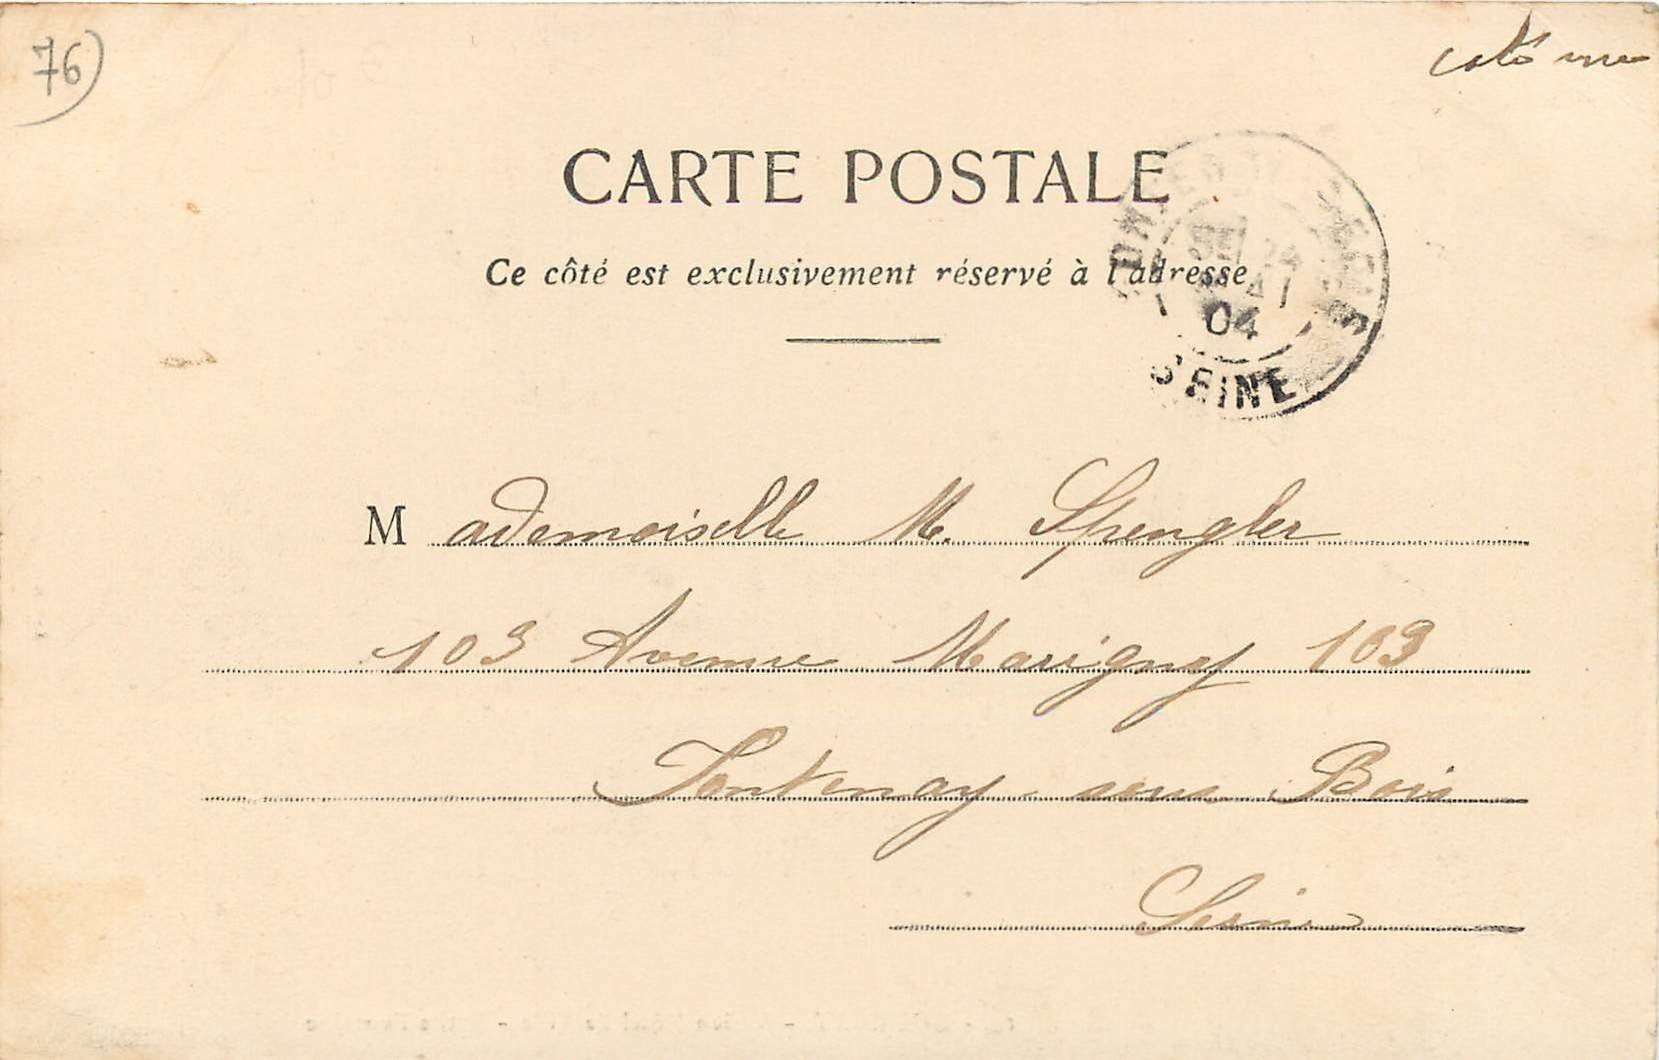 76)
coté vue
CARTE POSTALE
Ce côté est exclusivement réservé à l'adresse
04
SEINE
Mademoiselle M. Spengler
103 Avenue Marigny 103
Fontenay sous Bois
Seine